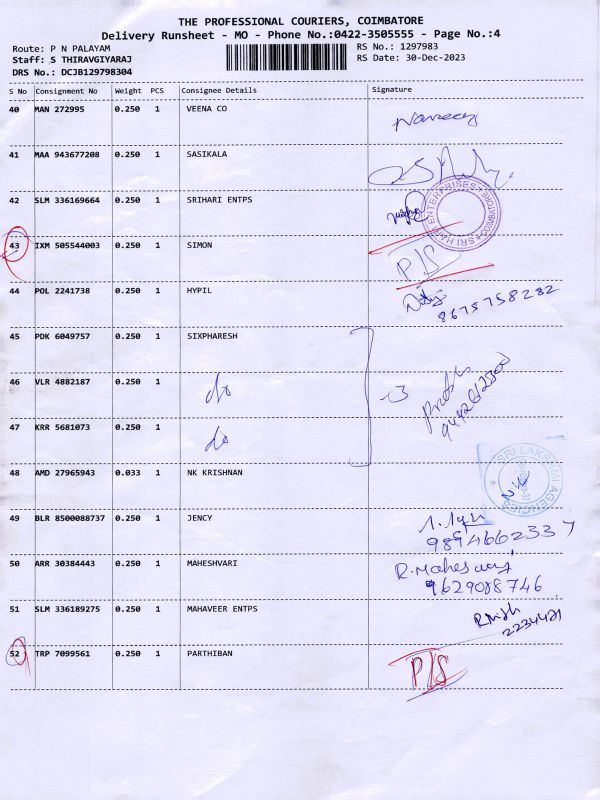 THE PROFESSIONAL COURIERS, COIMBATORE
Delivery Runsheet - MO - Phone No.:0422-3505555 - Page No.:4
Route: P N PALAYAM
RS No.: 1297983
Staff: S THIRAVGIYARAJ
RS Date: 30-Dec-2023
DRS No.: DCJB129798304
S No Consignment No Weight PCS Consignee Details Signature
40 MAN 272995 0.250 1 VEENA CO
41 MAA 943677208 0.250 1 SASIKALA
42 SLM 336169664 0.250 1 SRIHARI ENTPS
SRI HARI ENTERPRISES COIMBATORE
43 IXM 505544003 0.250 1 SIMON P/S
44 POL 2241738 0.250 1 HYPIL
8675758282
45 PDK 6049757 0.250 1 SIXPHARESH
46 VLR 4882187 0.250 1 do
47 KRR 5681073 0.250 1 do
48 AMD 27965943 0.033 1 NK KRISHNAN
SRI LAKSHMI AGENCIES
49 BLR 8500088737 0.250 1 JENCY
9894662337
50 ARR 30384443 0.250 1 MAHESHVARI R.Maheswary
9629088746
51 SLM 336189275 0.250 1 MAHAVEER ENTPS
2234421
52 TRP 7099561 0.250 1 PARTHIBAN P/S